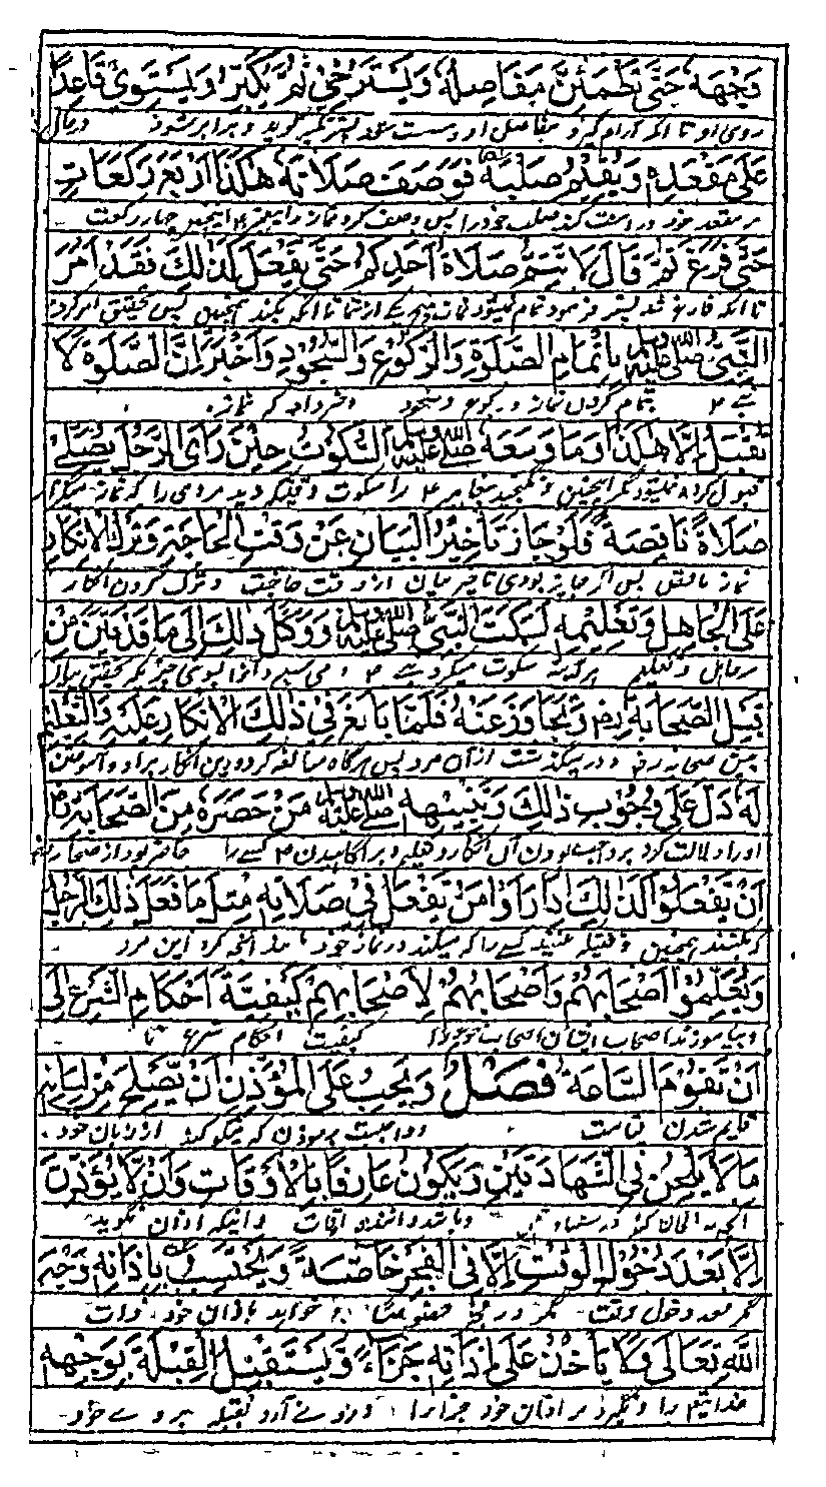 وَجْهَهُ حَتَّى تَطْمَئِنَّ مَفَاصِلُهُ وَيَسْتَرْخِيَ ثُمَّ يُكَبِّرُ وَيَسْتَوِي قَاعِدًا
روی او تا آنکه آرام گیرد مفاصل او و سست شود پستر تکبیر گوید و برابر شود
عَلَى مَقْعَدِهِ وَيُقِيْمُ صُلْبَهُ فَوَصَفَ صَلَاتَهُ هٰكَذَا اَرْبَعَ رَكَعَاتٍ
بر مقعد خود و راست کند صلب خود را پس وصف کرد نماز را چهار رکعت
حَتَّى فَرَغَ ثُمَّ قَالَ لَا تَتِمُّ صَلَاةُ اَحَدِكُمْ حَتَّى يَفْعَلَ كَذٰلِكَ فَقَدْ اَمَرَ
تا آنکه فارغ شد پستر فرمود تمام نمیشود نماز یکی از شما تا آنکه بکند همچنین پس تحقیق امر کرد
النَّبِيُّ صلى الله عليه وسلم بِاِتْمَامِ الصَّلٰوةِ وَالرُّكُوْعِ وَالسُّجُوْدِ وَاَخْبَرَ اَنَّ الصَّلٰوةَ لَا
بتمام کردن نماز و رکوع و سجود و خبر داد که نماز
تُقْبَلُ اِلَّا هٰكَذَا وَمَا وَسِعَهُ صلى الله عليه وسلم السُّكُوْتُ حِيْنَ رَاَى الرَّجُلَ يُصَلِّيْ
قبول کرده نمیشود مگر اینچنین را سکوت وقتیکه دید مردی را که نماز میگزارد
صَلَاةً نَاقِصَةً فَلَوْ جَازَ تَاخِيْرُ الْبَيَانِ عَنْ وَقْتِ الْحَاجَةِ وَتَرْكُ الْاِنْكَارِ
نماز ناقص پس اگر جایز بودی تاخیر بیان از وقت حاجت و ترک کردن انکار
عَلَى الْجَاهِلِ وَتَعْلِيْمِهِ لَسَكَتَ النَّبِيُّ صلى الله عليه وسلم وَوَكَلَ ذٰلِكَ اِلٰى مَا قَدْ بَيَّنَ مِنْ
بر جاهل و تعلیم هرآئینه سکوت میکرد
قَبْلُ الصَّحَابَةَ رض وَتَجَاوَزَ عَنْهُ فَلَمَّا بَالَغَ فِيْ ذٰلِكَ الْاِنْكَارِ عَلَيْهِ وَالتَّعْلِيْمِ
و درمیگذشت از آن مرد پس هرگاه مبالغه کرد در این انکار بر او و آموختن
لَهُ دَلَّ عَلٰى وُجُوْبِ ذٰلِكَ وَتَنْبِيْهِهِ صلى الله عليه وسلم مَنْ حَضَرَهُ مِنَ الصَّحَابَةِ رض
او را دلالت کرد بر واجب بودن آن انکار و تعلیم کسے را حاضر بود از صحابه
اَنْ يَفْعَلُوْا كَذٰلِكَ اِذَا رَاَوْا مَنْ يَفْعَلُ فِيْ صَلَاتِهِ مِثْلَ مَا فَعَلَ ذٰلِكَ الرَّجُلُ
که بکنند همچنین وقتیکه کسے را که میکند در نماز خود آنچه کرد این مرد
وَيُعَلِّمُوْا اَصْحَابَهُمْ وَاَصْحَابُهُمْ لِاَصْحَابِهِمْ كَيْفِيَّةَ اَحْكَامِ الشَّرْعِ اِلٰى
و بیاموزند اصحاب کیفیت احکام شرع تا
اَنْ تَقُوْمَ السَّاعَةُ فَصْلٌ وَيَجِبُ عَلَى الْمُؤَذِّنِ اَنْ يُصْلِحَ مِنْ لِسَانِهِ
قایم شدن قیامت و واجبست بر موذن که نیکو کند از زبان خود
مَا لَا يَلْحَنُ فِي الشَّهَادَتَيْنِ وَيَكُوْنَ عَارِفًا بِالْاَوْقَاتِ وَاَنْ لَّا يُؤَذِّنَ
و باشد داننده اوقات و اینکه اذان نگوید
اِلَّا بَعْدَ دُخُوْلِ الْوَقْتِ اِلَّا فِى الْفَجْرِ خَاصَّةً وَيَحْتَسِبُ بِاَذَانِهِ وَجْهَ
مگر بعد دخول وقت مگر در فجر خواهد باذان خود ذات
اللّٰهِ تَعَالٰى وَلَا يَاْخُذُ عَلٰى اَذَانِهِ جَزَاءً وَيَسْتَقْبِلُ الْقِبْلَةَ بِوَجْهِهِ
خدایتعالی را و نگیرد بر اذان خود جزا را و روے آرد بقبله بروے خود